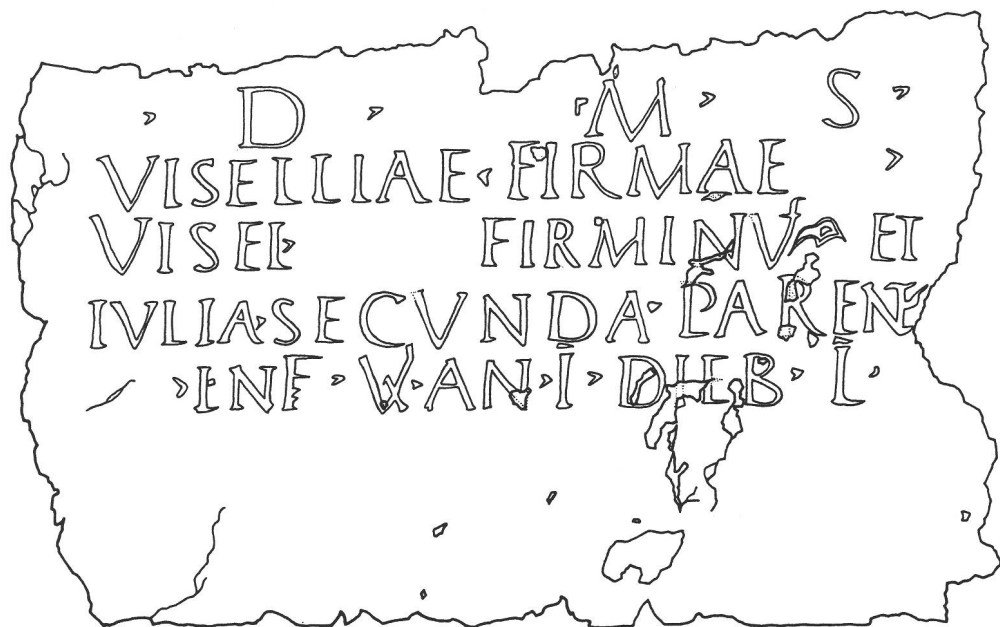 · D · M · S ·
VISELLIAE · FIRMAE ·
VISEL · FIRMINVS ET
IVLIA · SECVNDA · PARENT
· INF · VIX · AN · I · DIEB · L ·